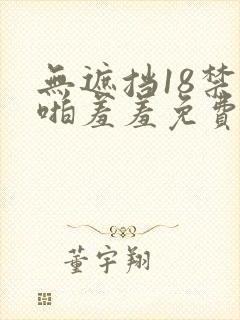 無遮挡18禁
啪羞羞免費
董宇翔